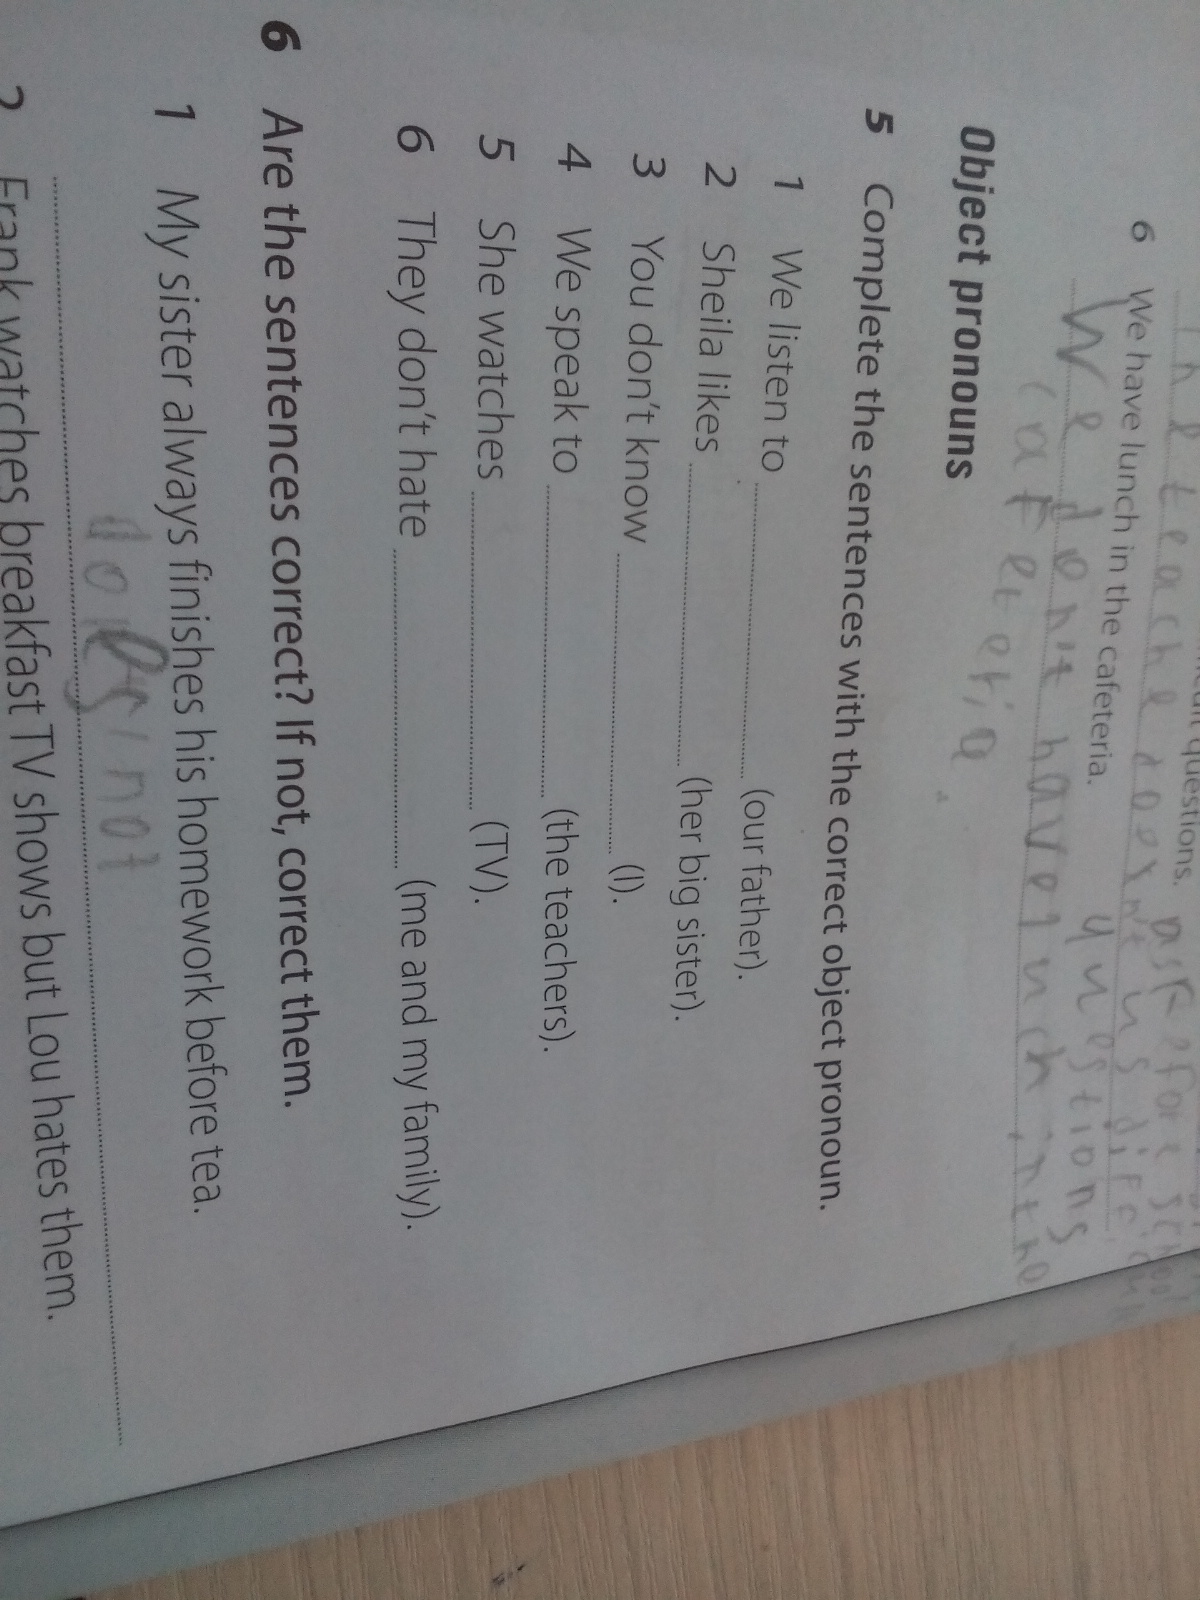 questions.
6 We have lunch in the cafeteria.
questions
We don't have lunch in the
cafeteria.
Object pronouns
5 Complete the sentences with the correct object pronoun.
1 We listen to ........ (our father).
2 Sheila likes ........ (her big sister).
3 You don't know ........ (I).
4 We speak to ........ (the teachers).
5 She watches ........ (TV).
6 They don't hate ........ (me and my family).
6 Are the sentences correct? If not, correct them.
1 My sister always finishes his homework before tea.
not
2 Frank watches breakfast TV shows but Lou hates them.